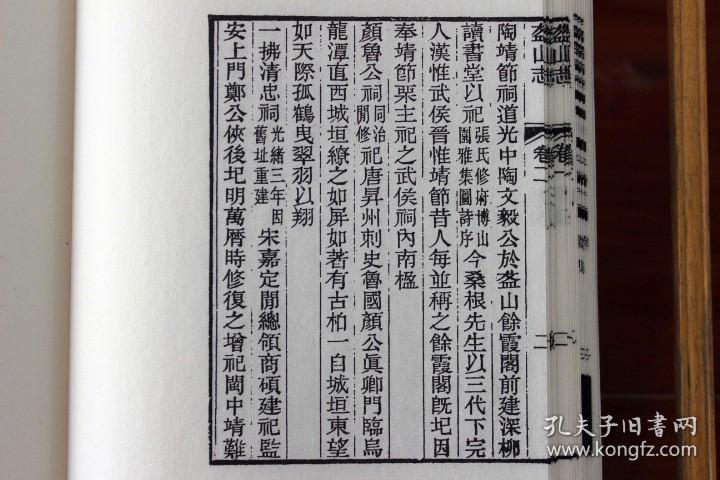 盋山志 卷二 二
陶靖節祠道光中陶文毅公於盋山餘霞閣前建深柳
讀書堂以祀張氏修府博山園雅集圖詩序今桑根先生以三代下完
人漢惟武侯晉惟靖節昔人每並稱之餘霞閣旣圮因
奉靖節栗主祀之武侯祠內南楹
顏魯公祠同治閒修祀唐昇州刺史魯國顏公眞卿門臨烏
龍潭直西城垣繚之如屏如著有古柏一自城垣東望
如天際孤鶴曳翠羽以翔
一拂淸忠祠光緒三年因舊址重建宋嘉定閒總領商碩建祀監
安上門鄭公俠後圮明萬曆時修復之增祀閩中靖難
孔夫子旧書网
www.kongfz.com